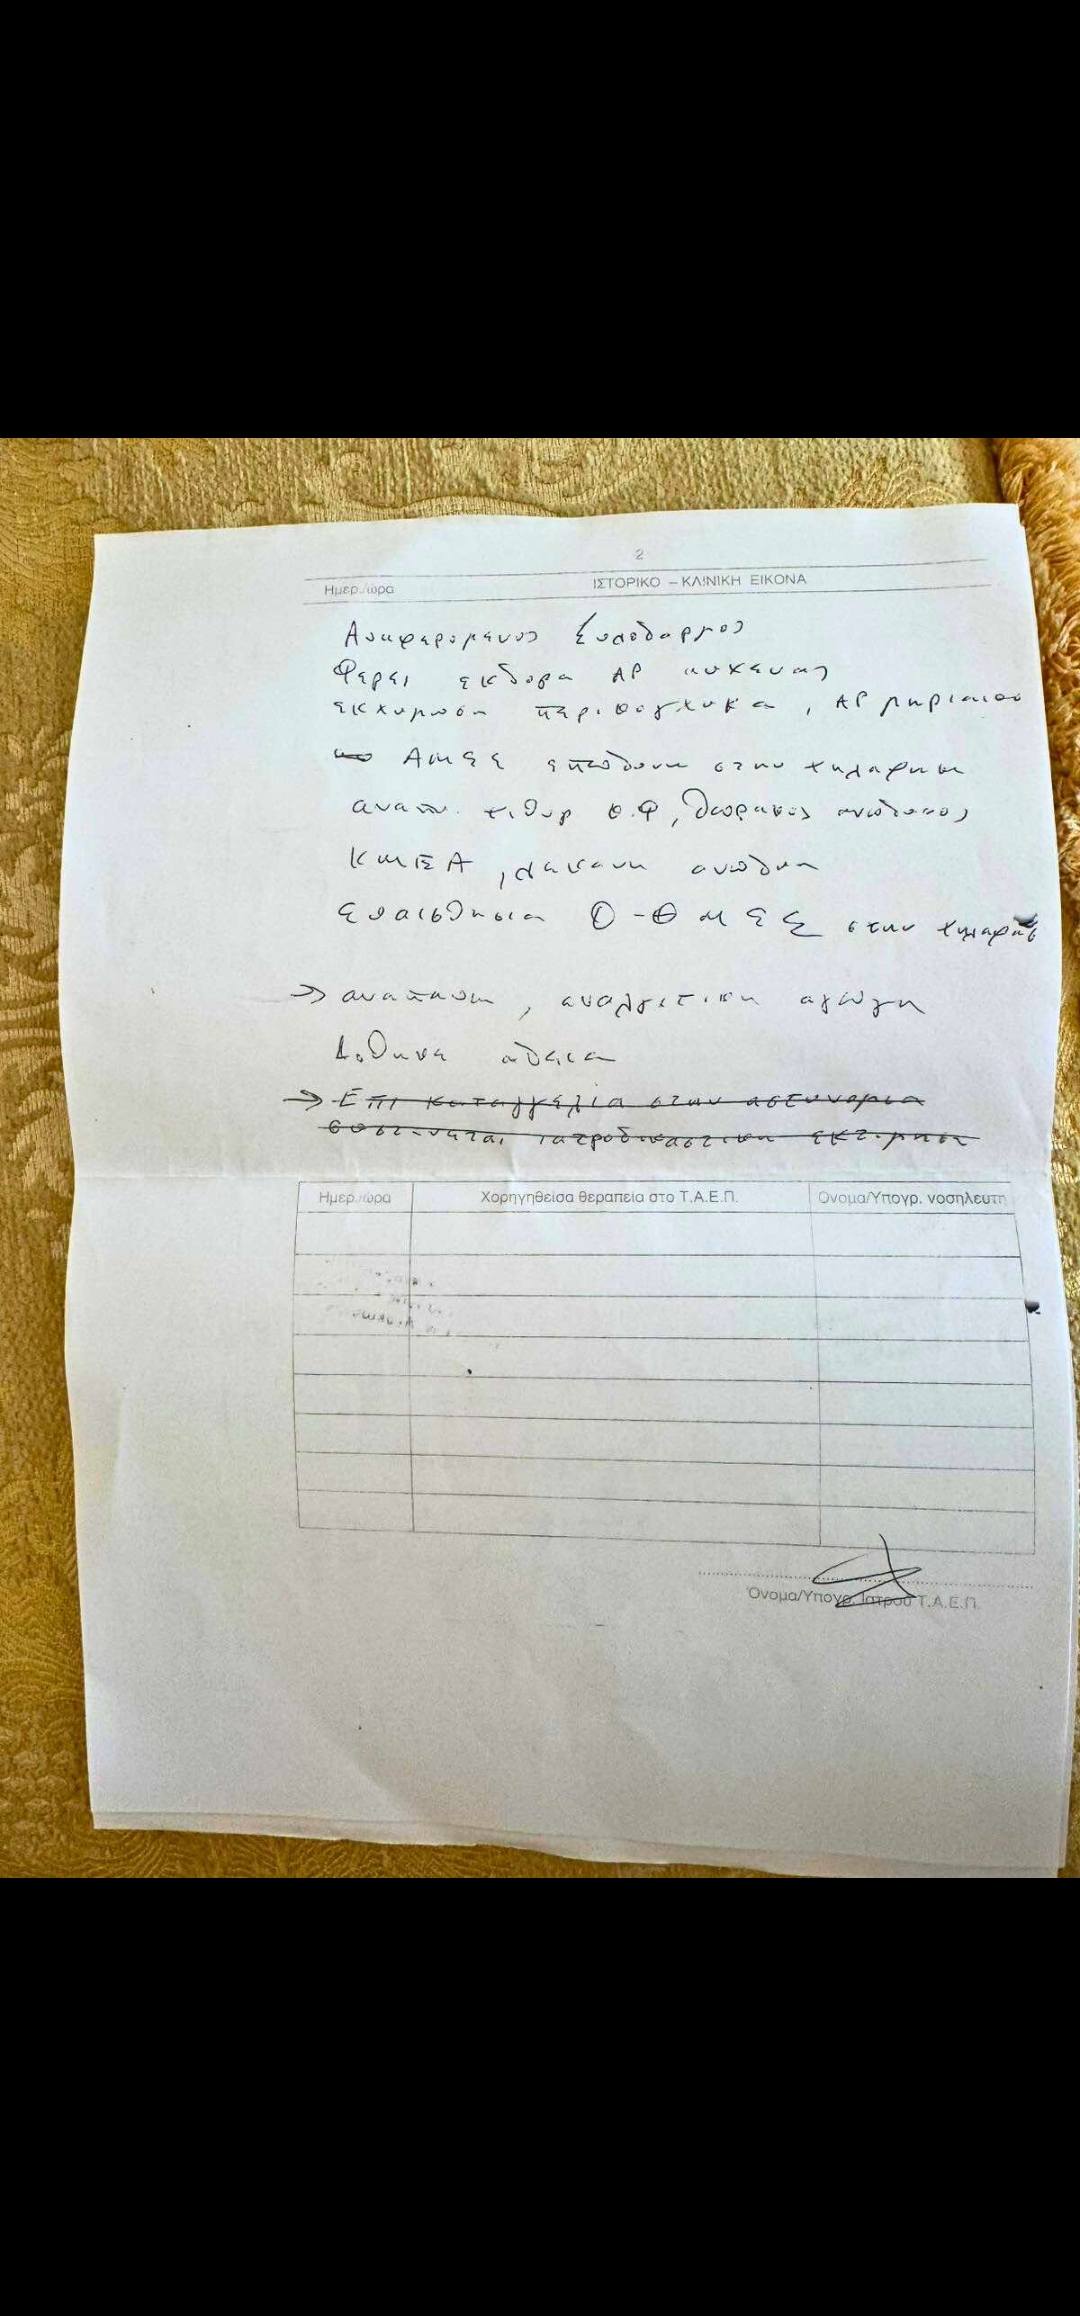 2
Ημερ./ώρα ΙΣΤΟΡΙΚΟ – ΚΛΙΝΙΚΗ ΕΙΚΟΝΑ
Αναφερομενος ξυλοδαρμος
Φερει εκδορα ΑΡ αυχενας
εκχυμωση περιβογχικα, ΑΡ μηριαιου
ΑΜΣΣ επωδυνη στην ψηλαφηση
αναπν. ψιθυρ Φ.Φ, θωρακας ανωδυνος
ΚΜΕΑ, λεκανη ανωδυνη
ευαισθησια Ο-ΘΜΣΣ στην ψηλαφηση
→ αναπαυση, αναλγητικη αγωγη
Δοθηκε αδεια
→ Επι καταγγελια στην αστυνομια
συστηνεται ιατροδικαστικη εκτιμηση
Ημερ./ώρα Χορηγηθείσα θεραπεία στο Τ.Α.Ε.Π. Όνομα/Υπογρ. νοσηλευτή
Όνομα/Υπογρ. Ιατρού Τ.Α.Ε.Π.